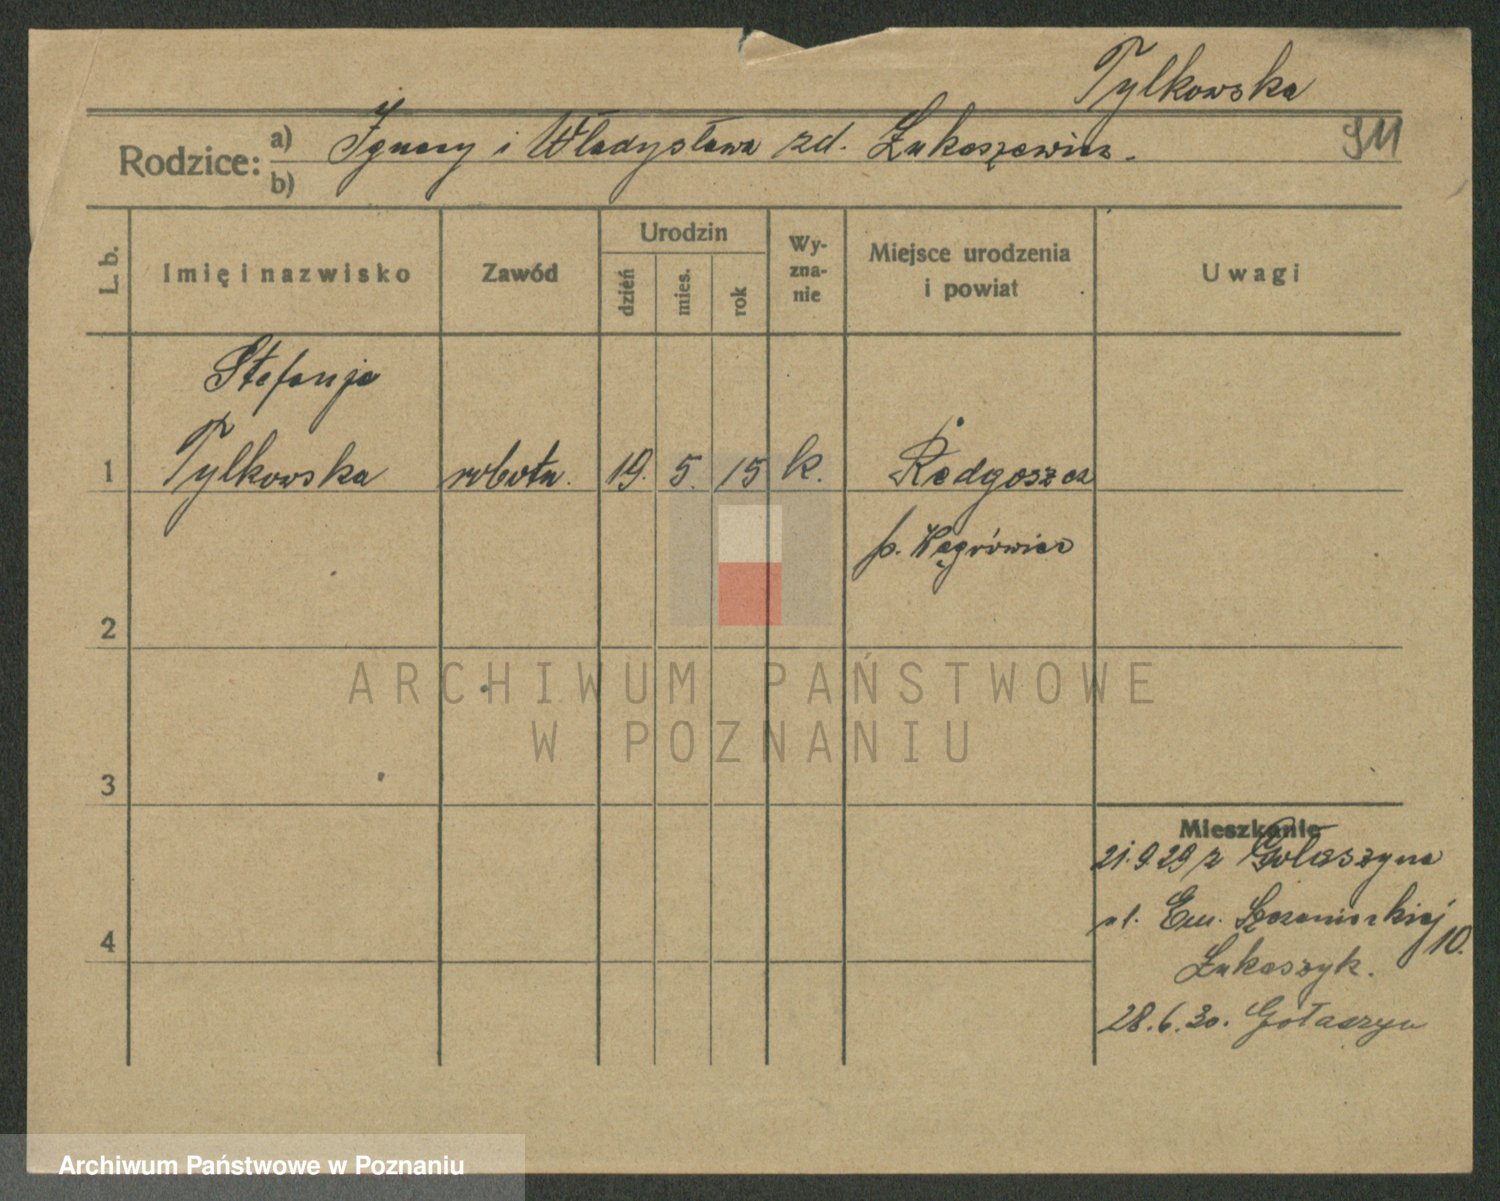 Tylkowska
911
Rodzice: a) b) Ignacy i Władysława zd. Łukaszewicz.
L. b.
Imię i nazwisko
Zawód
Urodzin
dzień
mies.
rok
Wy-
zna-
nie
Miejsce urodzenia
i powiat
Uwagi
Stefanja
1 Tylkowska robotn. 19. 5. 15 k. Redgoszcz
p. Wągrówiec
2
ARCHIWUM PAŃSTWOWE
W POZNANIU
3
Mieszkanie
21.9.29 z Gołaszyna
ul. Em. Sczanieckiej 10.
4
Łukaszyk.
28.6.30. Gołaszyn
Archiwum Państwowe w Poznaniu